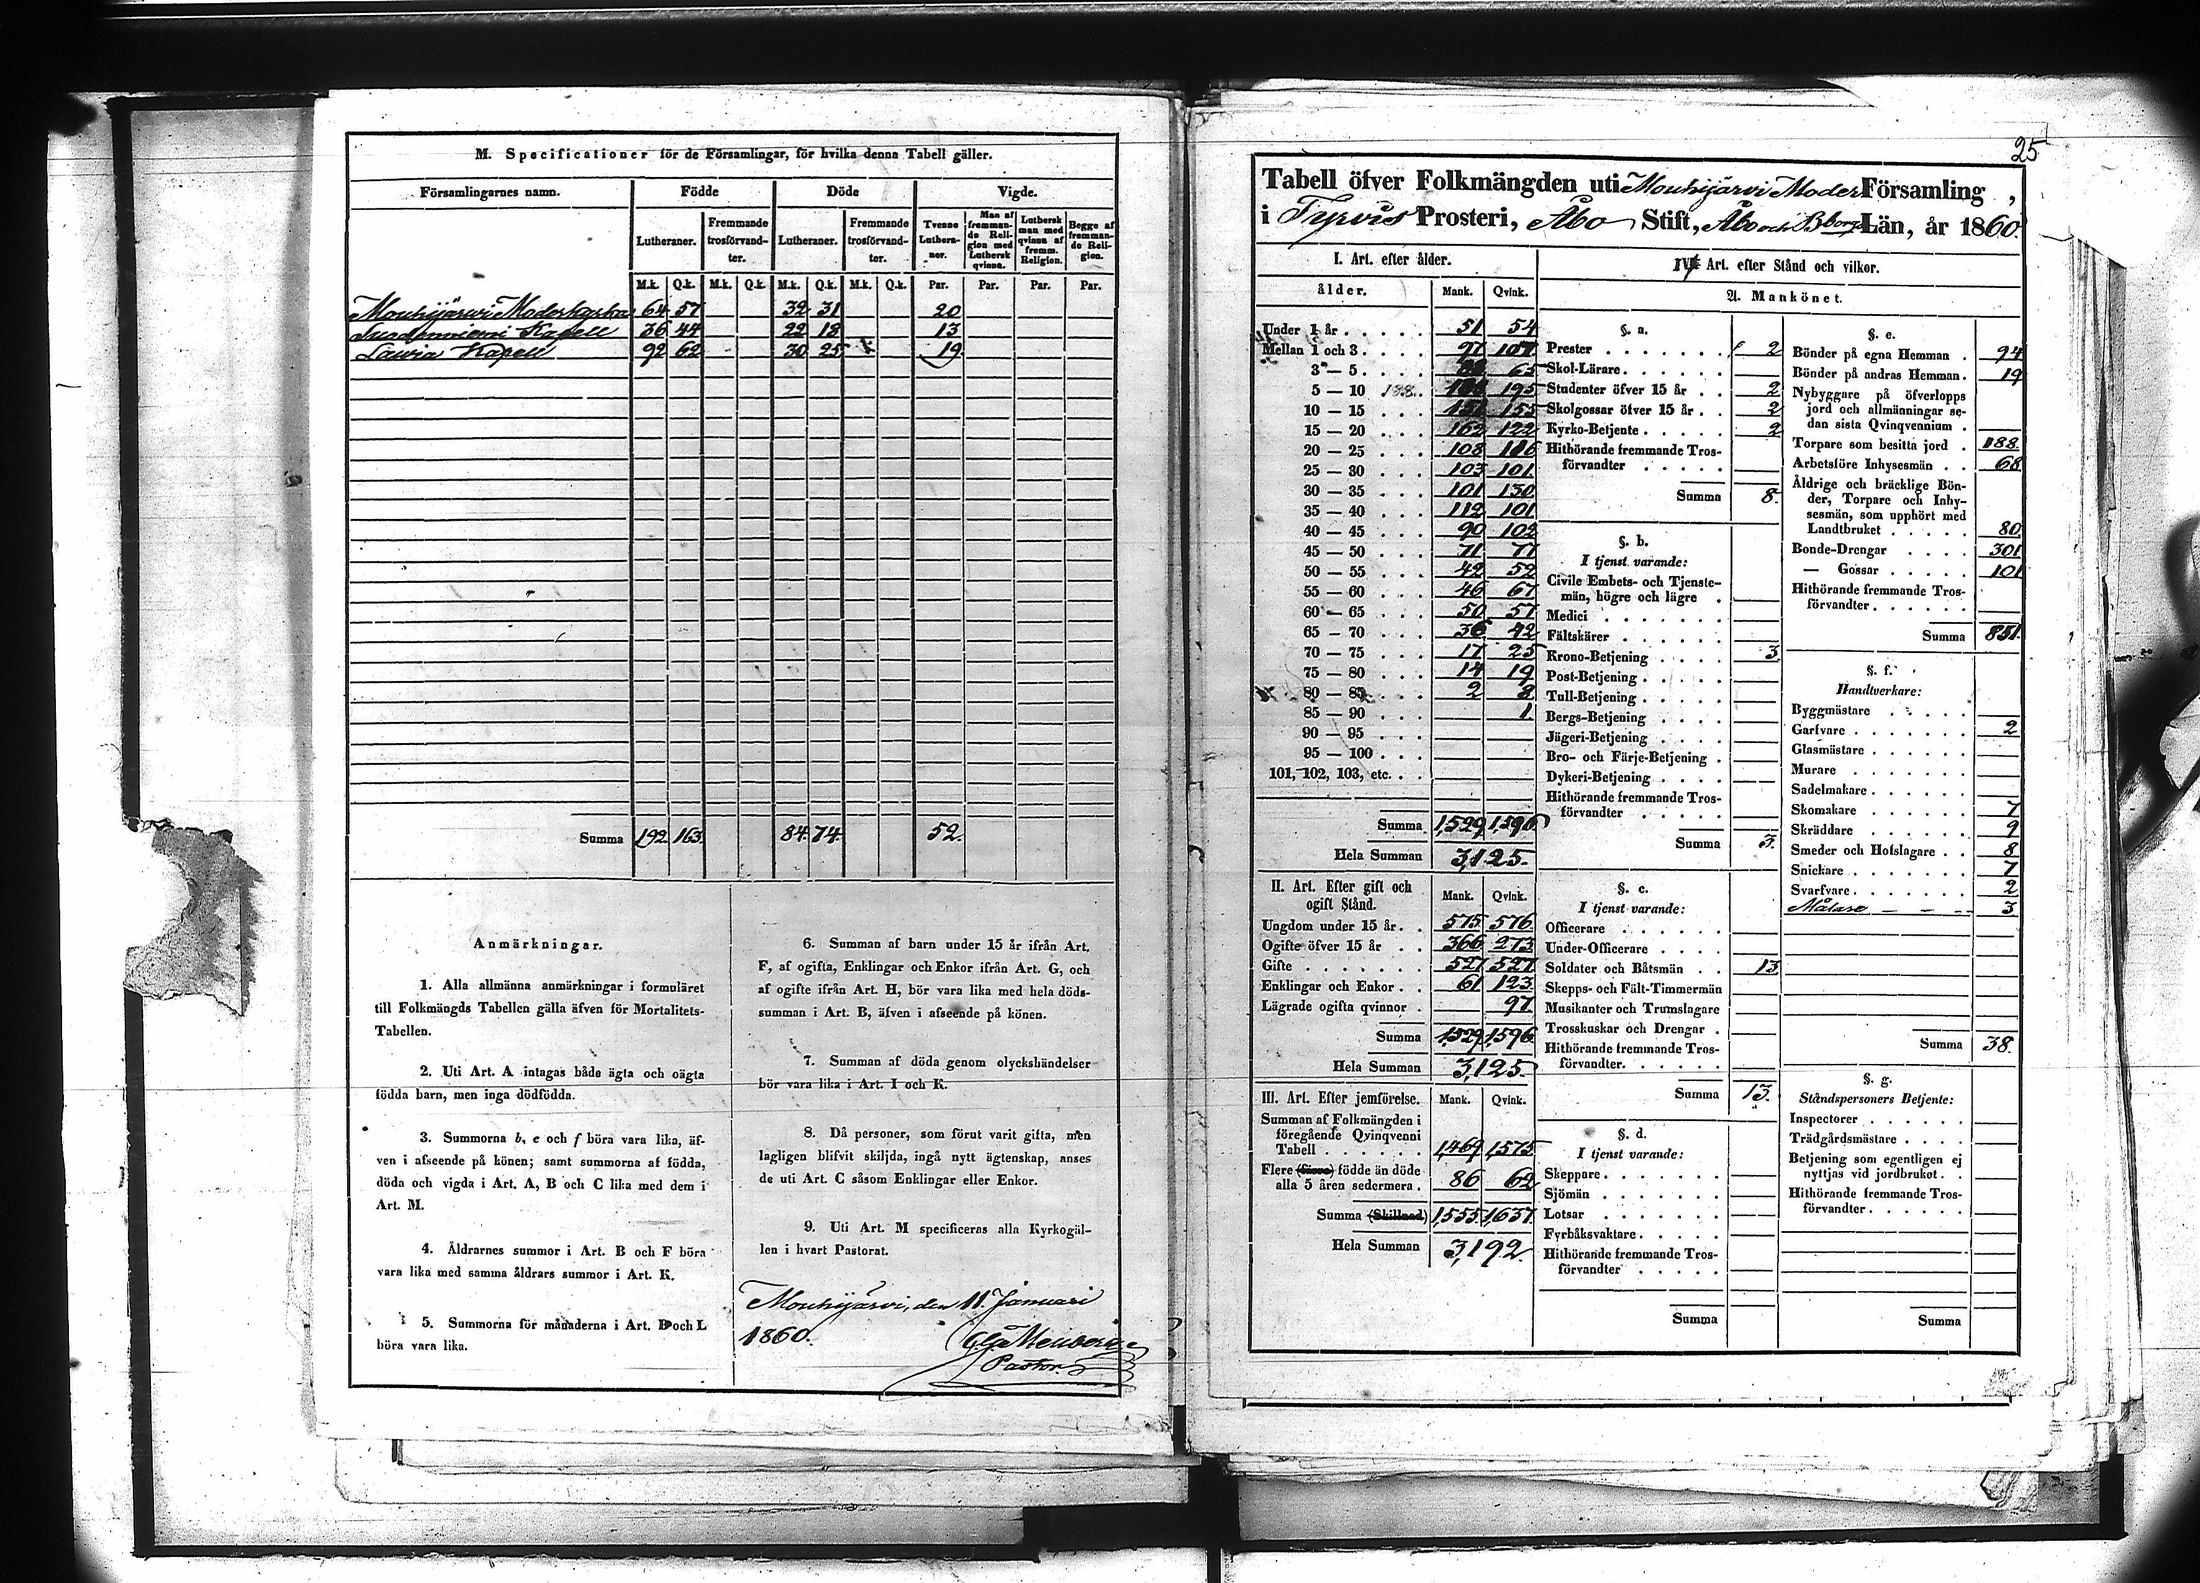 M. Specificationer för de Församlingar, för hvilka denna Tabell gäller.
Församlingarnes namn. Födde Döde Vigde.
Lutheraner. Fremmande trosförvandter. Lutheraner. Fremmande trosförvandter. Tvenne Lutheraner. Man af fremmande Religion med Luthersk qvinna. Luthersk man med qvinna af fremm. Religion. Begge af fremmande Religion.
M.k. Q.k. M.k. Q.k. M.k. Q.k. M.k. Q.k. Par. Par. Par. Par.
Mouhijärvi Moderkyrka 64 57 32 31 20
Suodenniemi Kapell 36 44 22 18 13
Lavia Kapell 92 62 30 25 19
Summa 192. 163. 84. 74. 52.
Anmärkningar.
1. Alla allmänna anmärkningar i formuläret
till Folkmängds Tabellen gälla äfven för Mortalitets-
Tabellen.
2. Uti Art. A intagas både ägta och oägta
födda barn, men inga dödfödda.
3. Summorna b, e och f böra vara lika, äf-
ven i afseende på könen; samt summorna af födda,
döda och vigda i Art. A, B och C lika med dem i
Art. M.
4. Åldrarnes summor i Art. B och F böra
vara lika med samma åldrars summor i Art. K.
5. Summorna för månaderna i Art. B och L
böra vara lika.
6. Summan af barn under 15 år ifrån Art.
F, af ogifta, Enklingar och Enkor ifrån Art. G, och
af ogifte ifrån Art. H, bör vara lika med hela döds-
summan i Art. B, äfven i afseende på könen.
7. Summan af döda genom olyckshändelser
bör vara lika i Art. I och K.
8. Då personer, som förut varit gifta, men
lagligen blifvit skiljda, ingå nytt ägtenskap, anses
de uti Art. C såsom Enklingar eller Enkor.
9. Uti Art. M specificeras alla Kyrkogäl-
len i hvart Pastorat.
Mouhijärvi, den 11. Januari
1860.
Pastor.
25
Tabell öfver Folkmängden uti Mouhijärvi Moder Församling,
i Tyrvis Prosteri, Åbo Stift, Åbo och Bborgs Län, år 1860.
I. Art. efter ålder.
ålder. Mank. Qvink.
Under 1 år 51 54
Mellan 1 och 3 97 107
3 — 5 65
5 — 10 188 195
10 — 15 151 155
15 — 20 162 122
20 — 25 108 116
25 — 30 103 101
30 — 35 101 130
35 — 40 112 101
40 — 45 90 102
45 — 50 71 77
50 — 55 42 52
55 — 60 46 67
60 — 65 50 57
65 — 70 36 42
70 — 75 17 25
75 — 80 14 19
80 — 85 2 8
85 — 90 1.
90 — 95
95 — 100
101, 102, 103, etc.
Summa 1,529 1,596
Hela Summan 3,125.
II. Art. Efter gift och ogift Stånd. Mank. Qvink.
Ungdom under 15 år 575 576
Ogifte öfver 15 år 366 273
Gifte 527 527
Enklingar och Enkor 61 123
Lägrade ogifta qvinnor 97
Summa 1,529 1,596
Hela Summan 3,125.
III. Art. Efter jemförelse. Mank. Qvink.
Summan af Folkmängden i
föregående Qvinqvenni
Tabell 1,469 1,575
Flere (färre) födde än döde
alla 5 åren sedermera 86 62
Summa (Skillnad) 1,555 1,637.
Hela Summan 3,192.
IV. Art. efter Stånd och vilkor.
A. Mankönet.
§. a.
Prester 2
Skol-Lärare
Studenter öfver 15 år 2
Skolgossar öfver 15 år 2
Kyrko-Betjente 2
Hithörande fremmande Tros-
förvandter
Summa 8.
§. b.
I tjenst varande:
Civile Embets- och Tjenste-
män, högre och lägre
Medici
Fältskärer
Krono-Betjening 3
Post-Betjening
Tull-Betjening
Bergs-Betjening
Jägeri-Betjening
Bro- och Färje-Betjening
Dykeri-Betjening
Hithörande fremmande Tros-
förvandter
Summa 3.
§. c.
I tjenst varande:
Officerare
Under-Officerare
Soldater och Båtsmän 13
Skepps- och Fält-Timmermän
Musikanter och Trumslagare
Trosskuskar och Drengar
Hithörande fremmande Tros-
förvandter
Summa 13.
§. d.
I tjenst varande:
Skeppare
Sjömän
Lotsar
Fyrbåksvaktare
Hithörande fremmande Tros-
förvandter
Summa
§. e.
Bönder på egna Hemman 94
Bönder på andras Hemman 19
Nybyggare på öfverlopps
jord och allmänningar se-
dan sista Qvinqvennium
Torpare som besitta jord 188.
Arbetsföre Inhysesmän 68
Åldrige och bräcklige Bön-
der, Torpare och Inhy-
sesmän, som upphört med
Landtbruket 80.
Bonde-Drengar 301
— Gossar 101
Hithörande fremmande Tros-
förvandter
Summa 851.
§. f.
Handtverkare:
Byggmästare
Garfvare 2
Glasmästare
Murare
Sadelmakare
Skomakare 7
Skräddare 9
Smeder och Hofslagare 8
Snickare 7
Svarfvare 2
Målare 3
Summa 38.
§. g.
Ståndspersoners Betjente:
Inspectorer
Trädgårdsmästare
Betjening som egentligen ej
nyttjas vid jordbruket
Hithörande fremmande Tros-
förvandter
Summa